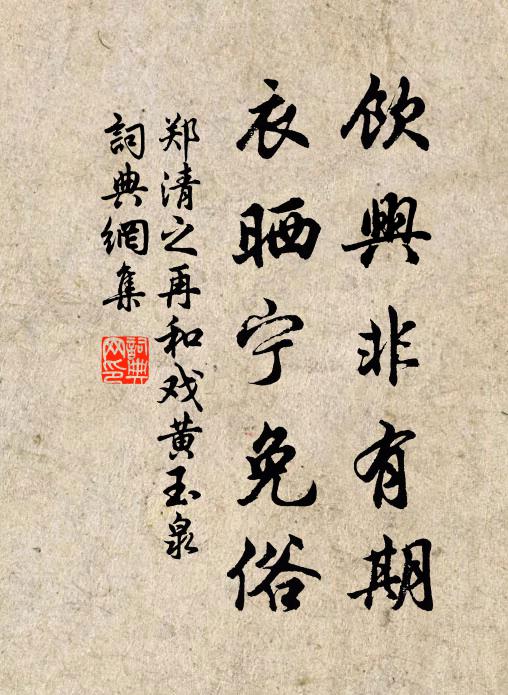 饮興非有期
衣晒宁免俗
郑清之再和戏黄玉泉
詞典網集
詞典网印